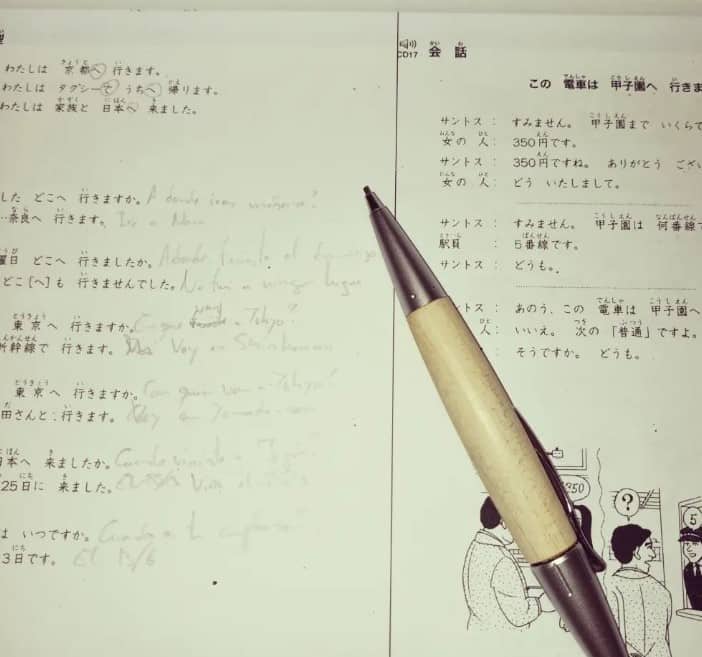 わたしは 京都へ 行きます。
わたしは タクシーで うちへ 帰ります。
わたしは 家族と 日本へ 来ました。
した どこへ 行きますか。 A donde iras mañana?
…奈良へ 行きます。 a Nara
曜日 どこへ 行きましたか。 el domingo
どこ[へ]も 行きませんでした。 No fui a ningun lugar
東京へ 行きますか。 a Tokyo?
新幹線で 行きます。 Voy en Shinkansen
東京へ 行きますか。 Con quien a Tokyo?
田さんと 行きます。 Voy con Yamada-san
日本へ 来ましたか。 Cuando viniste a
25日に 来ました。
は いつですか。 Cuando
3日です。 El
CD17 会話
この 電車は 甲子園へ 行きま
サントス: すみません。 甲子園まで いくらで
女の 人: 350円です。
サントス: 350円ですね。 ありがとう ござい
女の 人: どう いたしまして。
サントス: すみません。 甲子園は 何番線で
駅員: 5番線です。
サントス: どうも。
サントス: あのう、この 電車は 甲子園へ
人: いいえ。 次の 「普通」ですよ。
: そうですか。 どうも。
350
?
5